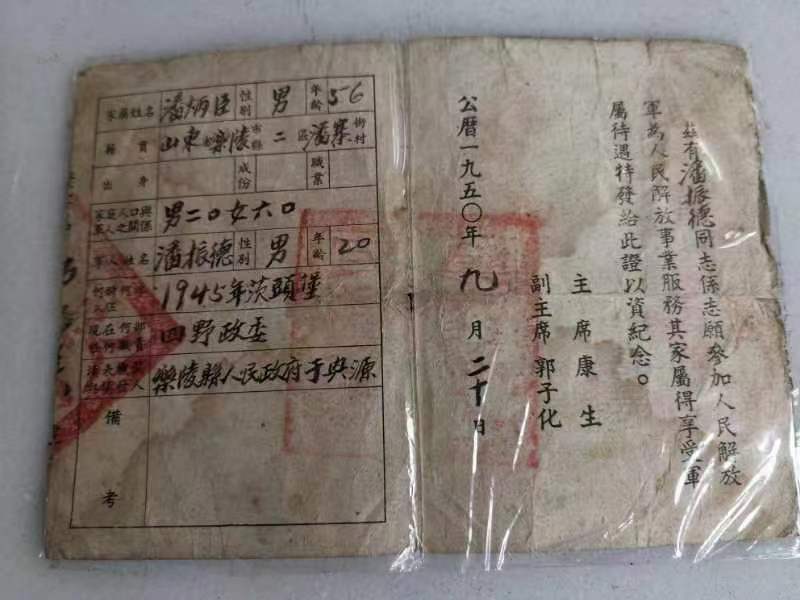 茲有潘振德同志係志願參加人民解放
軍為人民解放事業服務其家屬得享受軍
屬待遇特發給此證以資紀念。
主席康生
副主席郭子化
公曆一九五〇年九月二十日
家屬姓名 潘炳臣 性別 男 年齡 56
籍貫 山東省樂陵市縣二區潘寨街村
出身 成份 職業
家庭人口與軍人之關係 男二〇女六〇
軍人姓名 潘振德 性別 男 年齡 20
何時何地入伍 1945年茨頭堡
現在何部何職 四野政委
樂陵縣人民政府于與源
備考